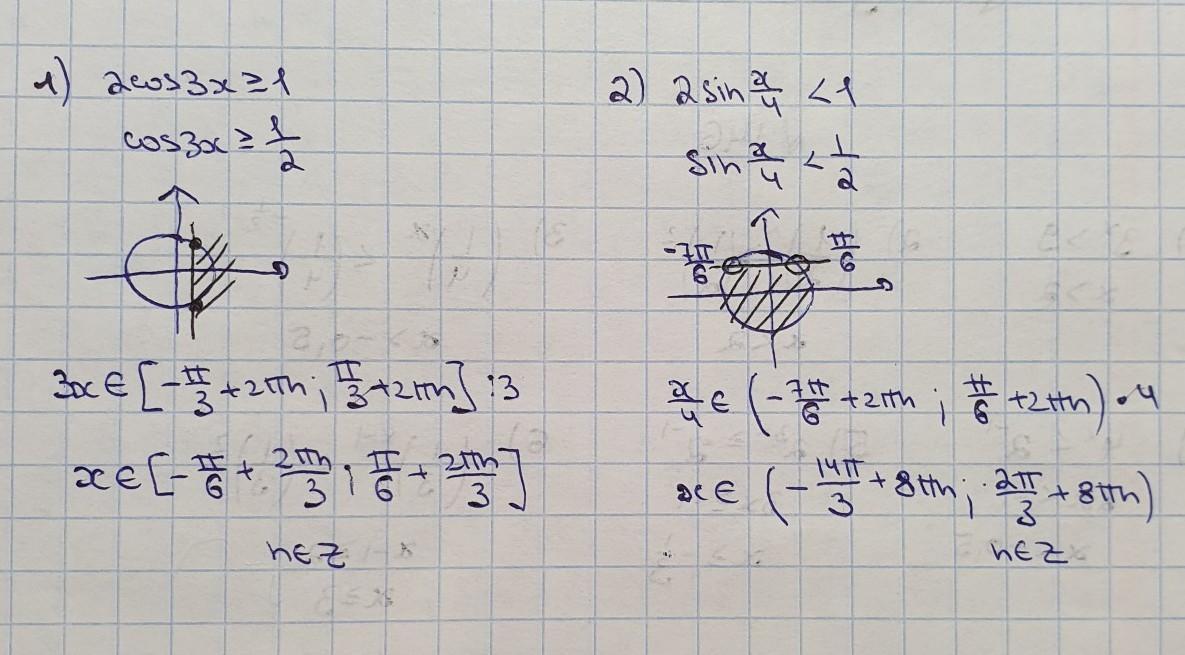 1) 2cos3x ≥ 1
cos3x ≥ 1/2
3x ∈ [-π/3 + 2πn ; π/3 + 2πn] :3
x ∈ [-π/6 + 2πn/3 ; π/6 + 2πn/3]
n ∈ Z
2) 2sin x/4 < 1
sin x/4 < 1/2
-7π/6 π/6
x/4 ∈ (-7π/6 + 2πn ; π/6 + 2πn) •4
x ∈ (-14π/3 + 8πn ; 2π/3 + 8πn)
n ∈ Z